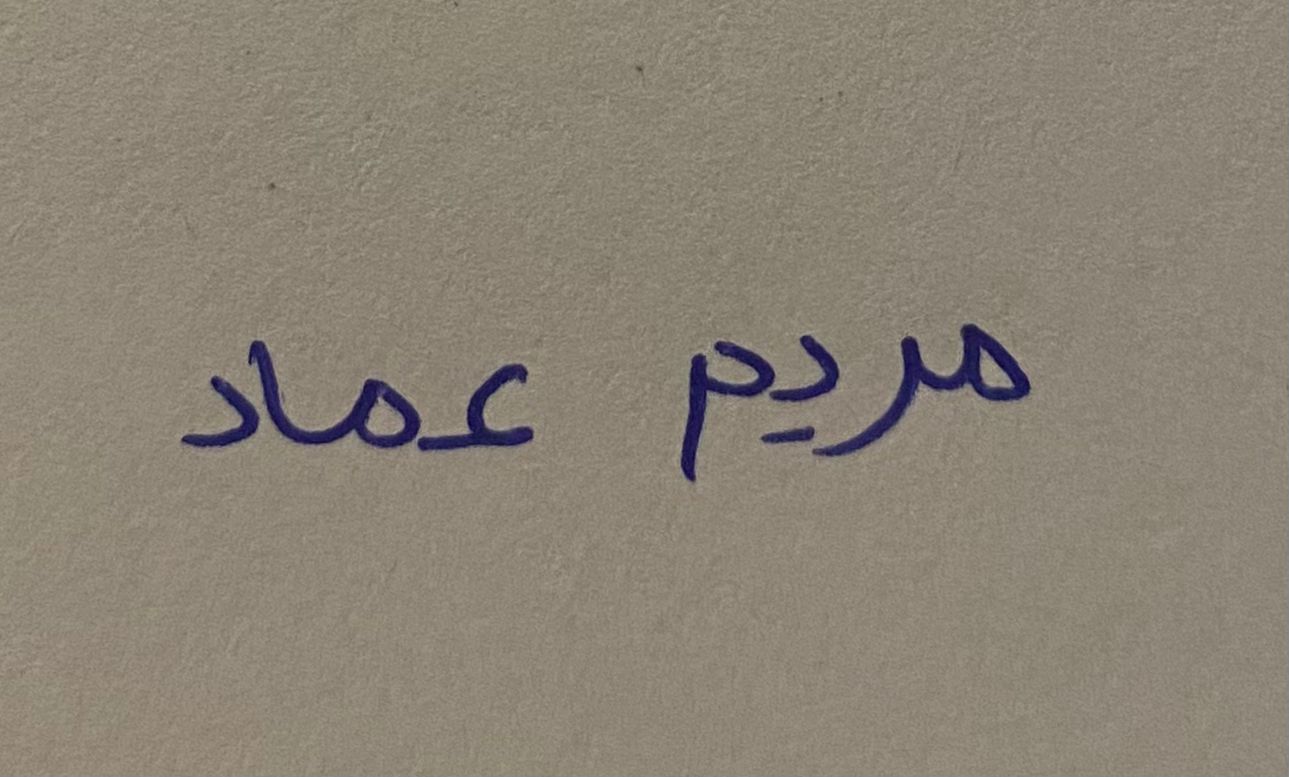 مريم عماد